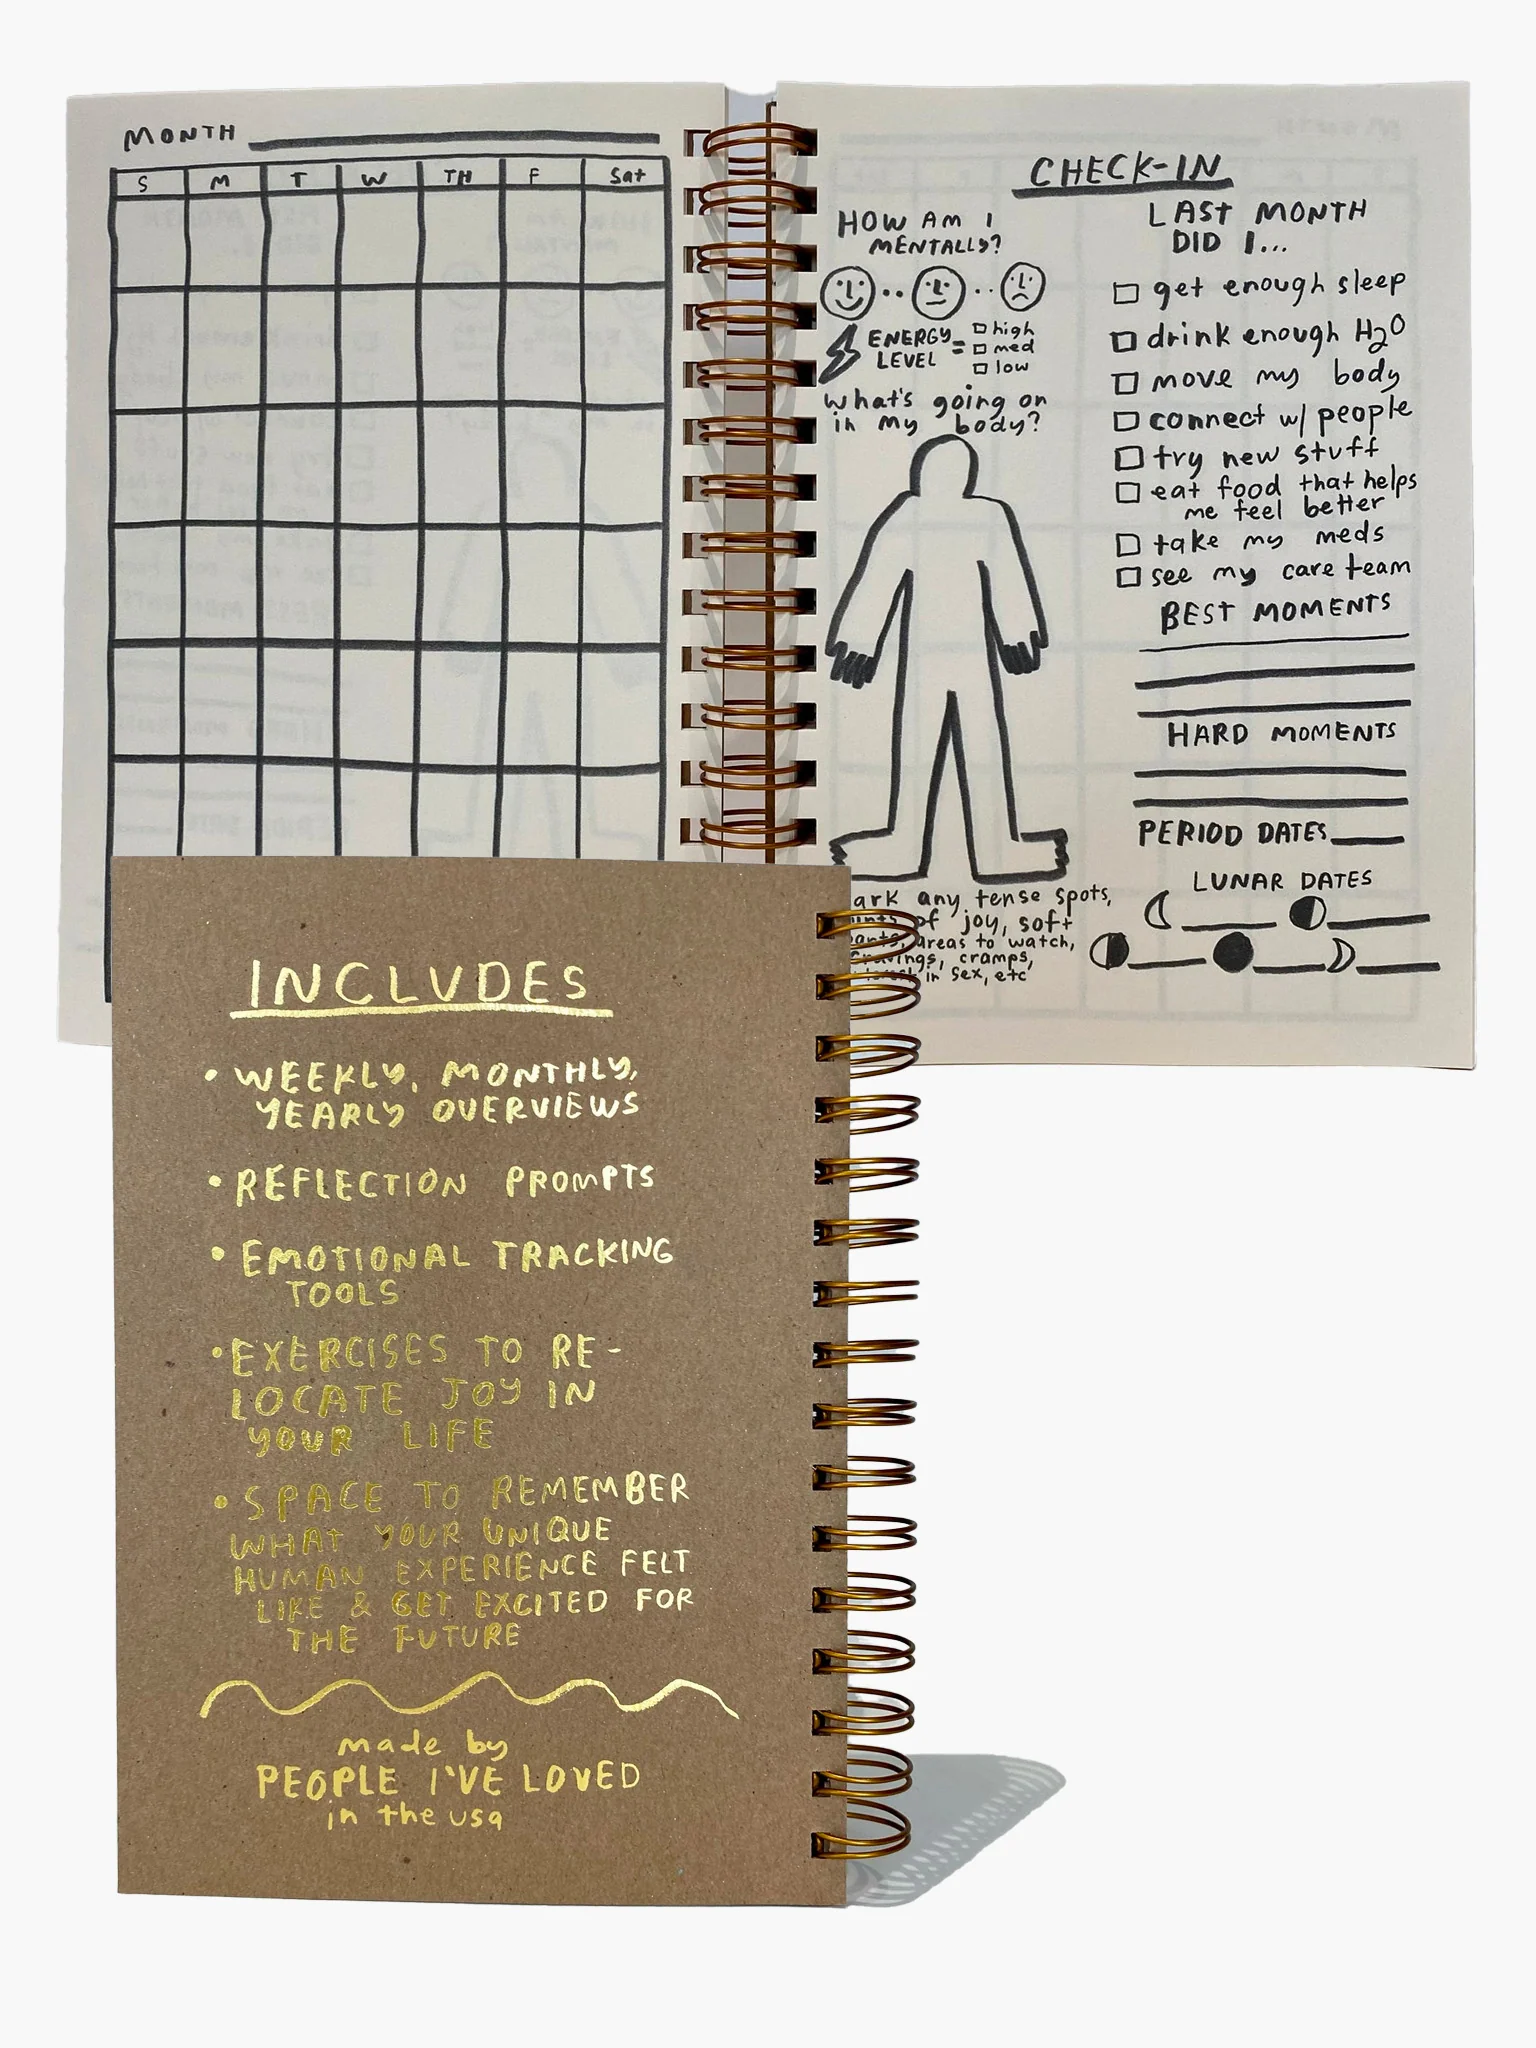 MONTH
S M T W TH F Sat
CHECK-IN
HOW AM I
MENTALLY?
ENERGY
LEVEL =
high
med
low
what's going on
in my body?
ark any tense spots,
of joy, soft
areas to watch,
cramps,
in sex, etc
LAST MONTH
DID I...
get enough sleep
drink enough H2O
move my body
connect w/ people
try new stuff
eat food that helps
me feel better
take my meds
see my care team
BEST MOMENTS
HARD MOMENTS
PERIOD DATES
LUNAR DATES
INCLUDES
• WEEKLY, MONTHLY,
YEARLY OVERVIEWS
• REFLECTION PROMPTS
• EMOTIONAL TRACKING
TOOLS
• EXERCISES TO RE-
LOCATE JOY IN
YOUR LIFE
• SPACE TO REMEMBER
WHAT YOUR UNIQUE
HUMAN EXPERIENCE FELT
LIKE & GET EXCITED FOR
THE FUTURE
made by
PEOPLE I'VE LOVED
in the usa